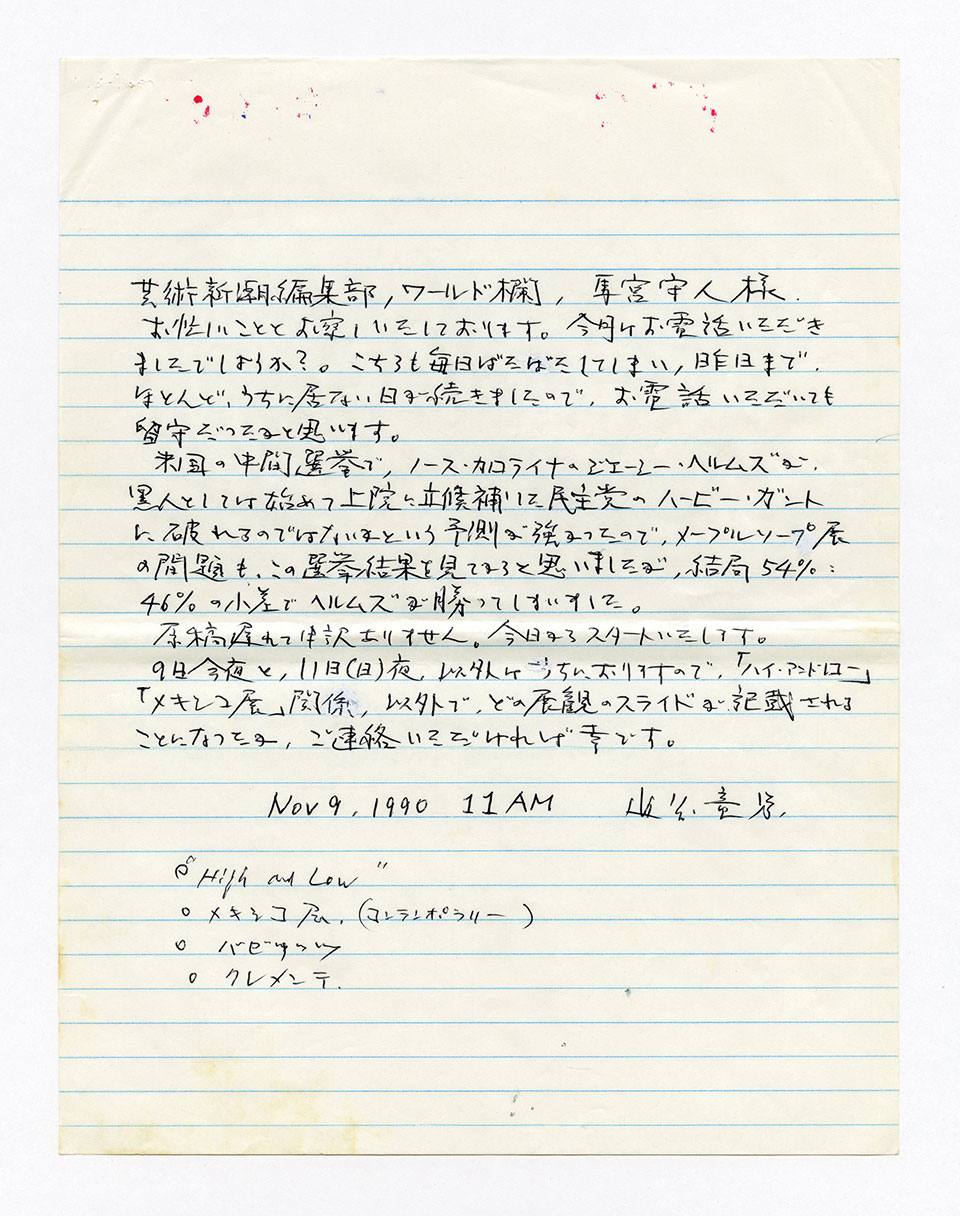 芸術新潮編集部, ワールド欄, 馬宮守人様.
お忙しいこととお察しいたしております。今月はお電話いただき
ましたでしょうか?。こちらも毎日ばたばたしてしまい, 昨日まで,
ほとんど, うちに居ない日が続きましたので, お電話いただいても
留守だったかと思います。
米国の中間選挙で, ノース・カロライナのジェーシー・ヘルムズが,
黒人としては始めて上院に立候補した民主党のハービー・ガント
に破れるのではないかという予測が強かったので, メープルソープ展
の問題も, この選挙結果を見てからと思いましたが, 結局54%:
46%の小差でヘルムズが勝ってしまいました。
原稿遅れて申訳ありません。今日からスタートいたします。
9日今夜と, 11日(日)夜, 以外はうちにおりますので, 「ハイ・アンド・ロー」
「メキシコ展」関係, 以外で, どの展観のスライドが記載される
ことになったか, ご連絡いただければ幸です。
Nov 9, 1990 11 AM
○ "High and Low"
○ メキシコ展. (コンテンポラリー)
○
○ クレメンテ.